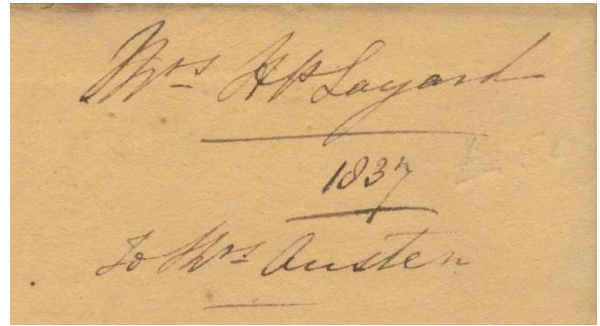 Mrs HP Layard
1837
To Mrs Austen